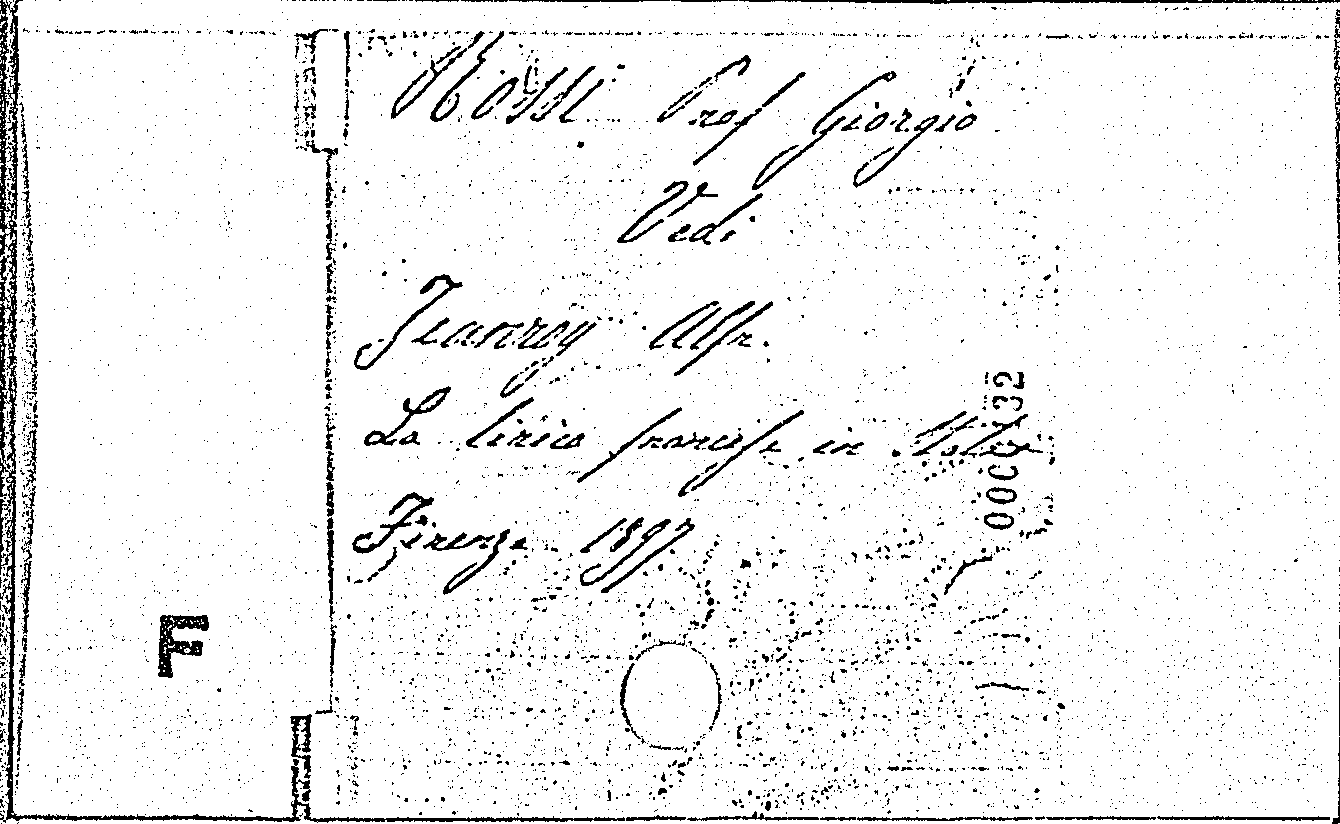 Rossi Prof Giorgio
Vedi
Jeanroy Alfr.
La lirica francese in Italia
Firenze 1897
F